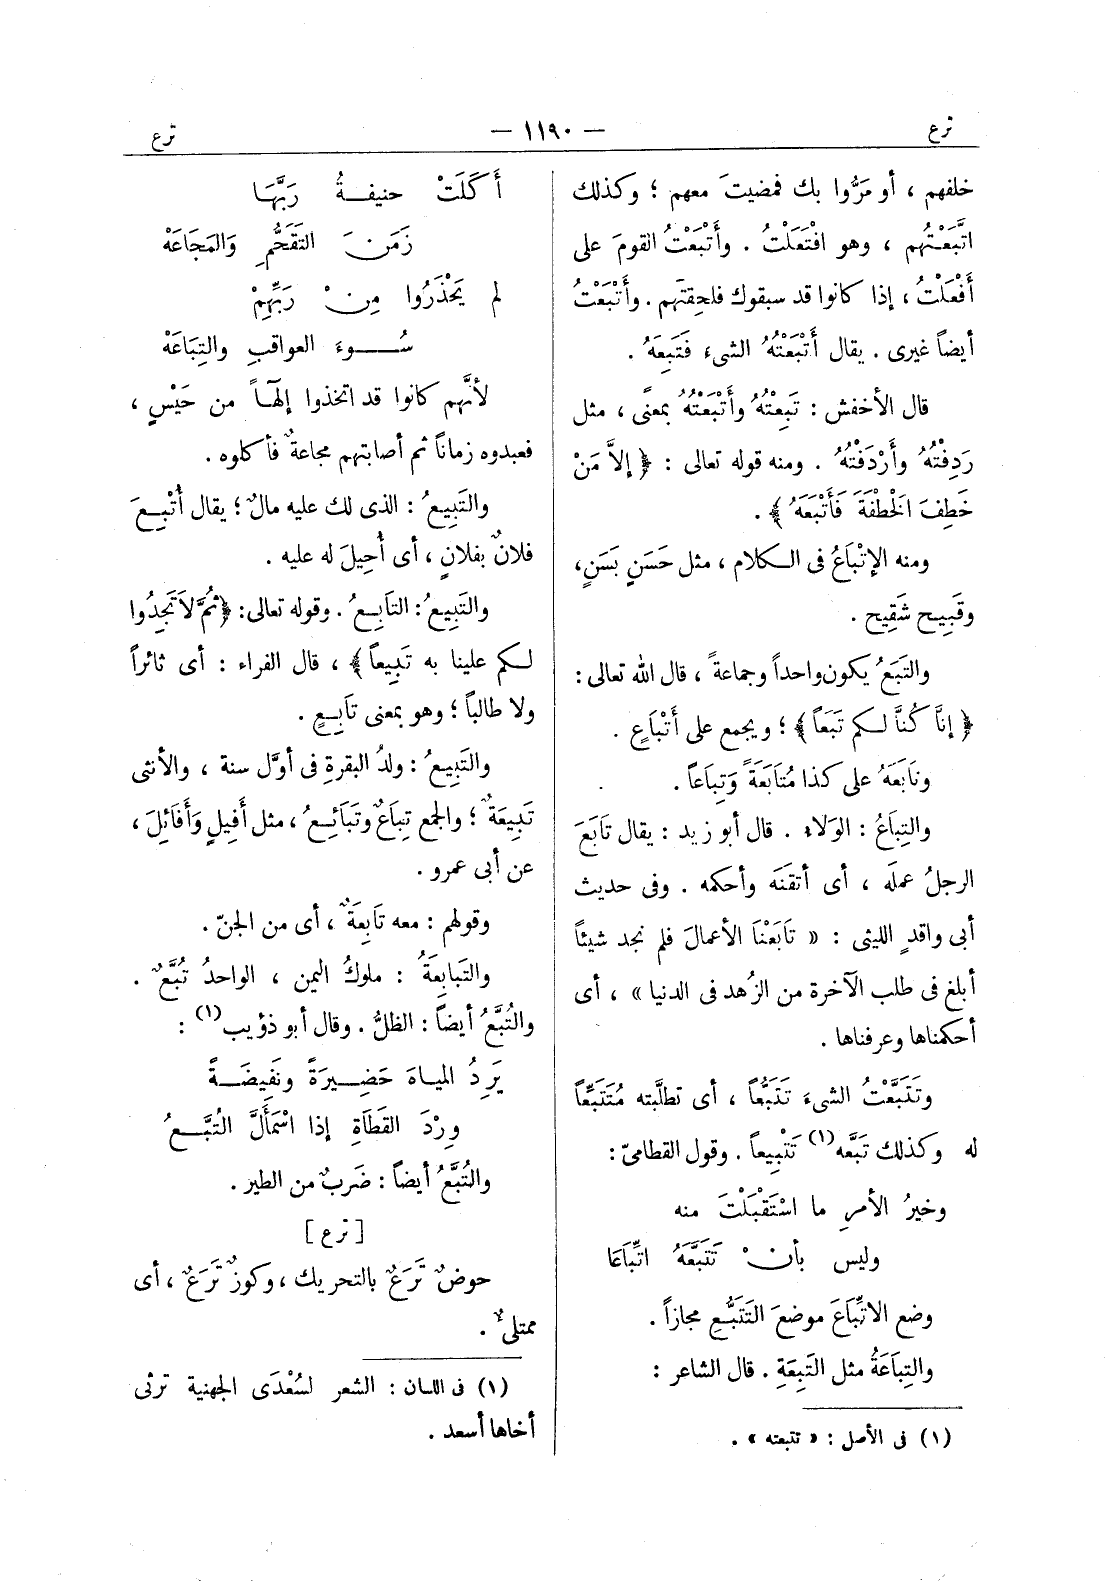 ترع
— ١١٩٠ —
ترع
خلفهم ، أو مَرُّوا بك فمضيتَ معهم ؛ وكذلك
اتَّبَعْتُهم ، وهو افْتَعَلْتُ . وأَتْبَعْتُ القومَ على
أَفْعَلْتُ ، إذا كانوا قد سبقوك فلحِقتَهم . وأَتْبَعْتُ
أيضاً غيرى . يقال أَتْبَعْتُهُ الشىء فَتَبِعَهُ .
قال الأخفش : تَبِعْتُهُ وأَتْبَعْتُهُ بمعنًى ، مثل
رَدِفْتُهُ وأَرْدَفْتُهُ . ومنه قوله تعالى : ﴿ إلاَّ مَنْ
خَطِفَ الْخَطْفَةَ فَأَتْبَعَهُ ﴾ .
ومنه الإتْبَاعُ فى الكلام ، مثل حَسَنٍ بَسَنٍ،
وقَبِيح شَقِيح .
والتَبَعُ يكون واحداً وجماعةً ، قال الله تعالى :
﴿ إنَّا كُنَّا لكم تَبَعاً ﴾ ؛ ويجمع على أَتْبَاعٍ .
وتَابَعَهُ على كذا مُتَابَعَةً وَتِبَاعاً .
والتِبَاعُ : الوَلاء . قال أبو زيد : يقال تَابَعَ
الرجلُ عملَه ، أى أتقنَه وأحكمه . وفى حديث
أبى واقدٍ الليثى : « تَابَعْنَا الأعمالَ فلم نجد شيئاً
أبلغ فى طلب الآخرة من الزُهد فى الدنيا » ، أى
أحكمناها وعرفناها .
وتَتَبَّعْتُ الشىءَ تَتَبُّعاً ، أى تطلَّبته مُتَتَبِّعاً
له وكذلك تَبَّعَه (١) تَتْبِيعاً . وقول القطامىّ :
وخيرُ الأمرِ ما اسْتَقْبَلْتَ منه
وليس بأَنْ تَتَبَّعَهُ اتِّبَاعَا
وضع الاتِّبَاعَ موضعَ التَتَبُّعِ مجازاً .
والتِبَاعَةُ مثل التَبِعَةِ . قال الشاعر :
(١) فى الأصل : « تتبعته » .
أَكَلَتْ حنيفةُ رَبَّهَا
زَمَنَ التَقَحُّمِ وَالمَجَاعَهْ
لم يَحْذَرُوا مِنْ رَبِّهِمْ
سُوءَ العواقبِ والتِبَاعَهْ
لأنَّهم كانوا قد اتخذوا إلٰهاً من حَيْسٍ ،
فعبدوه زماناً ثم أصابتهم مجاعةٌ فأكلوه .
والتَبِيعُ : الذى لك عليه مالٌ ؛ يقال أُتْبِعَ
فلانٌ بفلانٍ ، أى أُحِيلَ له عليه .
والتَبِيعُ : التَابِعُ . وقوله تعالى : ﴿ ثُمَّ لاَ تَجِدُوا
لكم علينا به تَبِيعاً ﴾ ، قال الفراء : أى ثائراً
ولا طالباً ؛ وهو بمعنى تَابِعٍ .
والتَبِيعُ : ولدُ البقرةِ فى أوَّل سنة ، والأنثى
تَبِيعَةٌ ؛ والجمع تِبَاعٌ وتَبَائِعُ ، مثل أَفِيلٍ وَأَفَائِلَ ،
عن أبى عمرو .
وقولهم : معه تَابِعَةٌ ، أى من الجنّ .
والتَبابِعَةُ : ملوكُ اليمن ، الواحدُ تُبَّعٌ .
والتُبَّعُ أيضاً : الظلُّ . وقال أبو ذؤيب (١) :
يَرِدُ المياهَ حَضِيرَةً ونَفِيضَةً
وِرْدَ القَطَاةِ إذا اسْمَأَلَّ التُبَّعُ
والتُبَّعُ أيضاً : ضَربٌ من الطير .
[ ترع ]
حوضٌ تَرَعٌ بالتحريك ، وكوزٌ تَرَعٌ ، أى
ممتلىٌ .
(١) فى اللسان : الشعر لسُعْدَى الجهنية ترثى
أخاها أسعد .